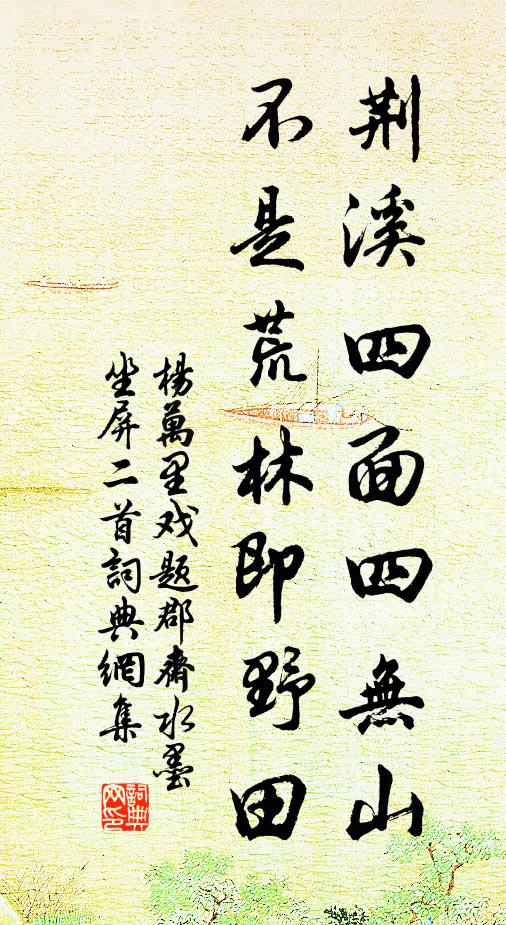 荆溪四面四無山
不是荒林即野田
楊萬里戏题郡齋水墨
坐屏二首詞典網集
詞典
网印